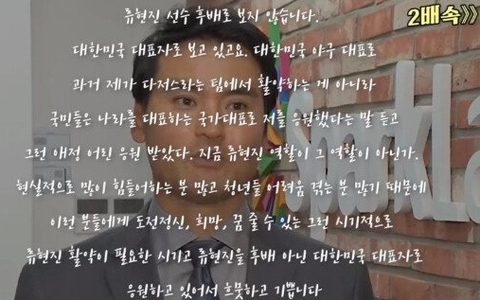 류현진 선수 후배로 보지 않습니다.
2배속》
대한민국 대표자로 보고 있고요. 대한민국 야구 대표로
과거 제가 다저스라는 팀에서 활약하는 게 아니라
국민들은 나라를 대표하는 국가대표로 저를 응원했다는 말 듣고
그런 애정 어린 응원 받았다. 지금 류현진 역할이 그 역할이 아닌가.
현실적으로 많이 힘들어하는 분 많고 청년들 어려움 겪는 분 많기 때문에
이런 분들에게 도전정신, 희망, 꿈 줄 수 있는 그런 시기적으로
류현진 활약이 필요한 시기고 류현진을 후배 아닌 대한민국 대표자로
응원하고 있어서 흐뭇하고 기쁩니다